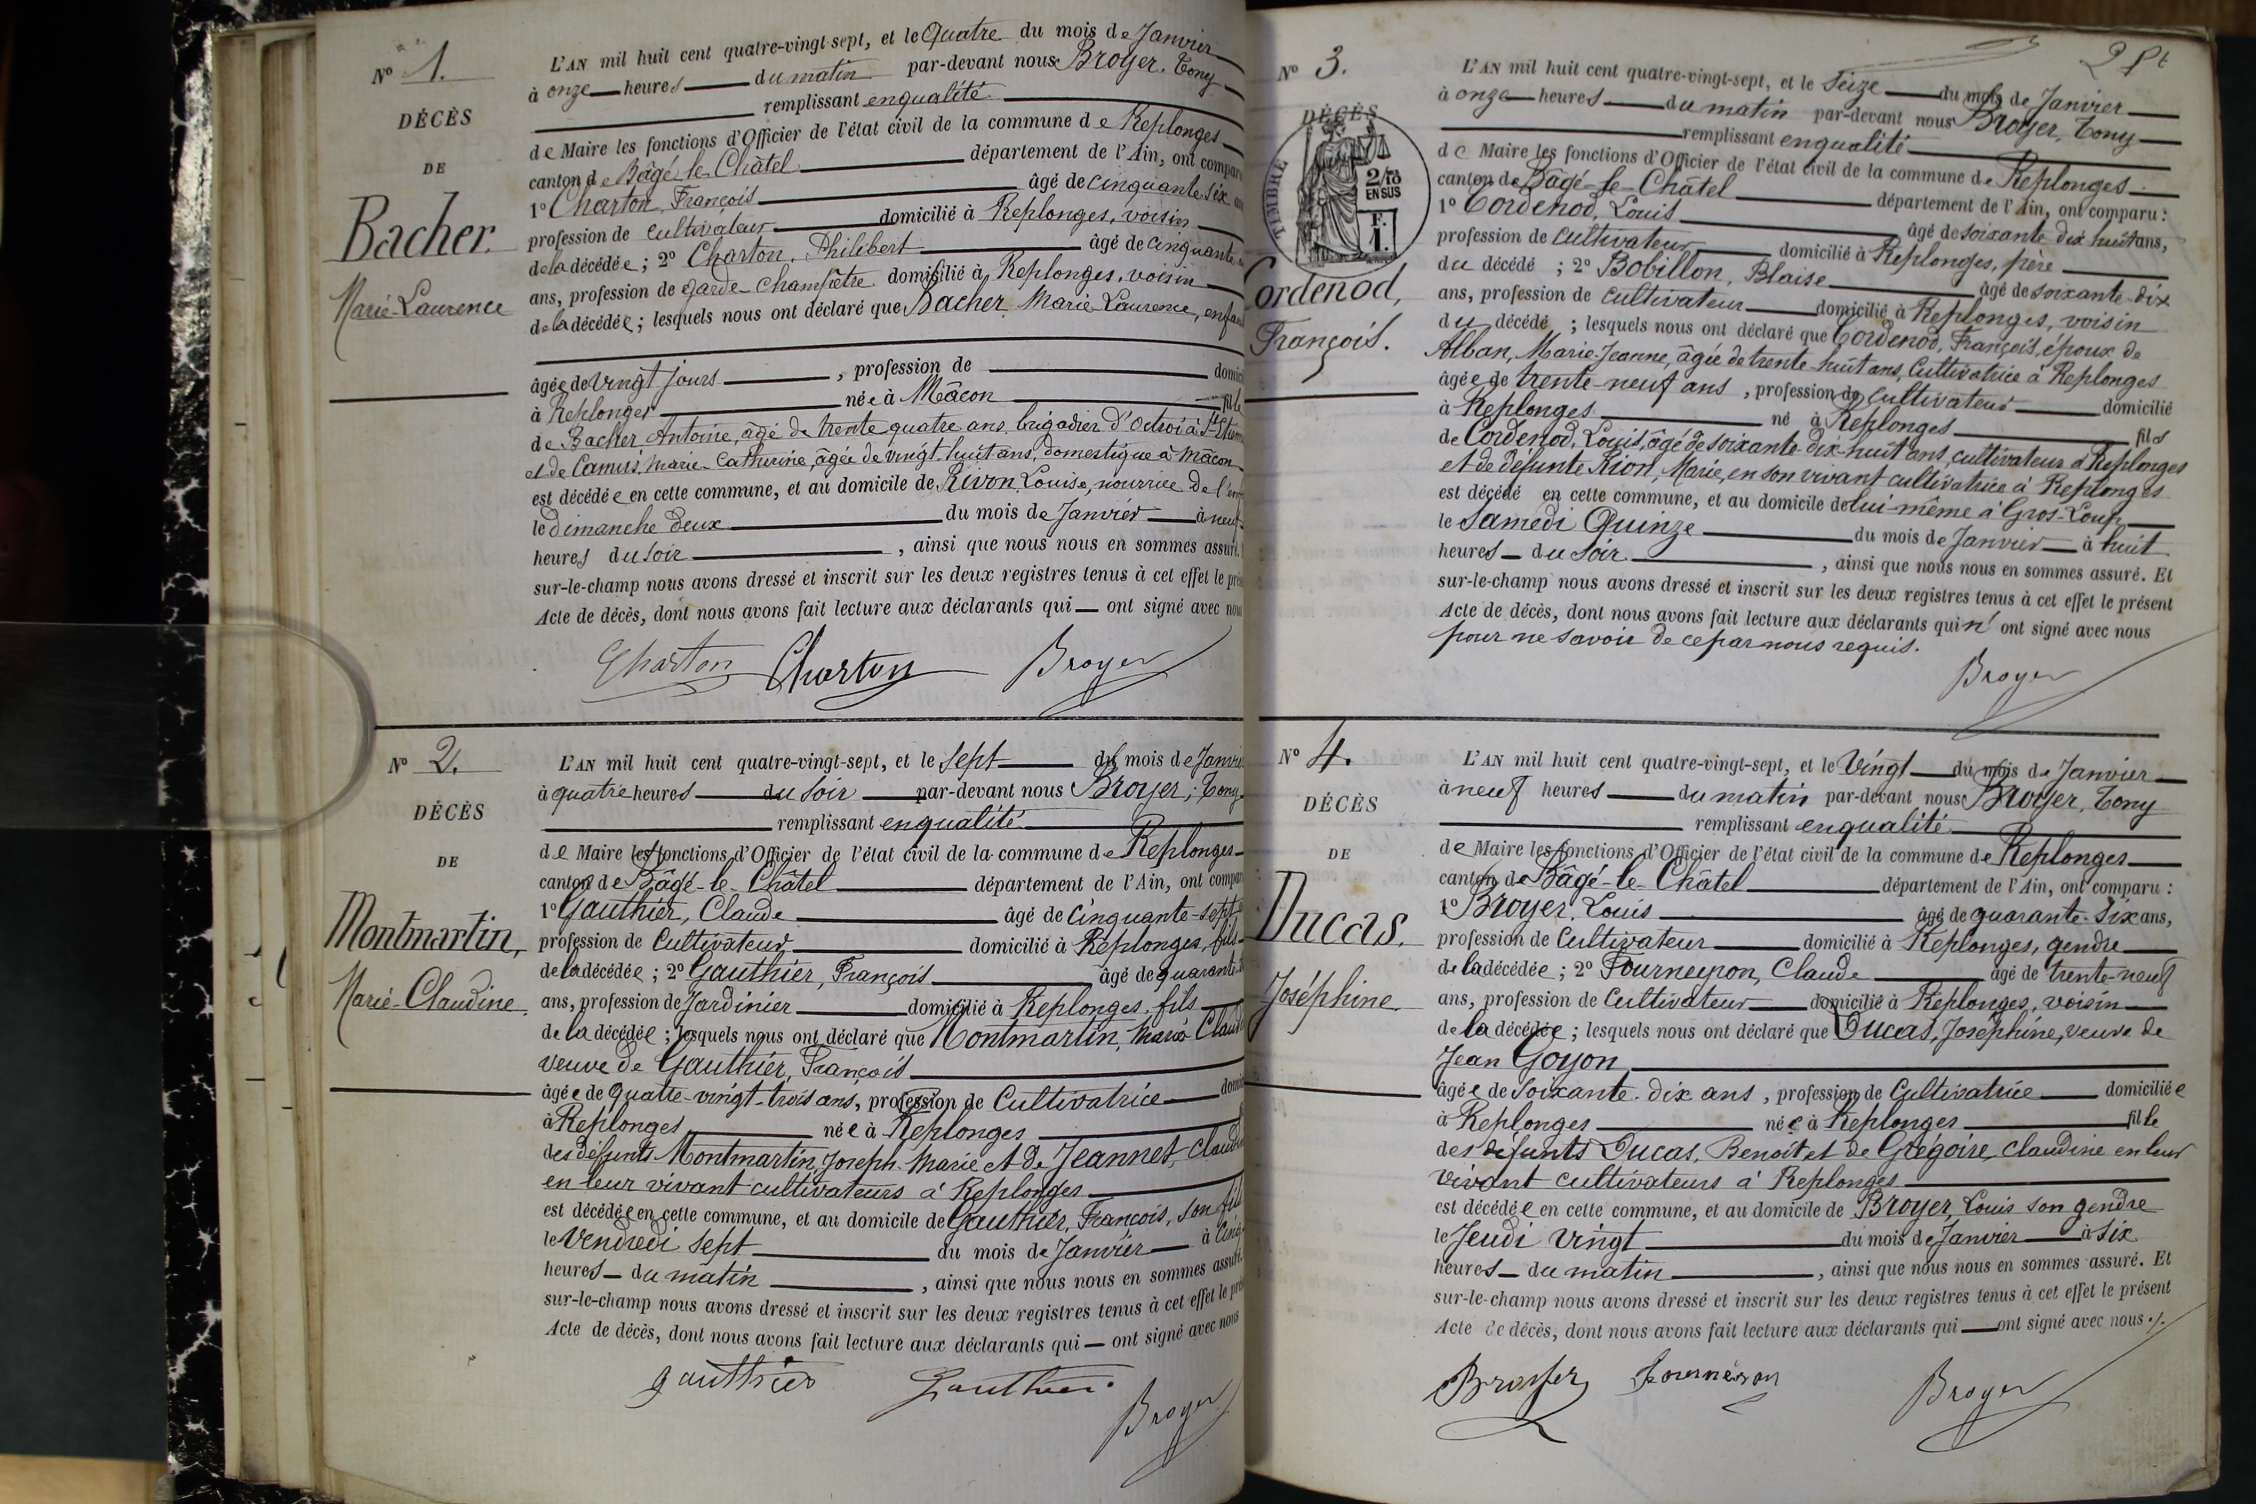 N° 1.
DÉCÈS
DE
Bacher.
Marie-Laurence
L'AN mil huit cent quatre-vingt-sept, et le Quatre du mois de Janvier
à onze heures du matin par-devant nous Broyer, Tony
remplissant en qualité
de Maire les fonctions d'Officier de l'état civil de la commune de Replonges
canton de Bâgé-le-Châtel département de l'Ain, ont compar
1° Charton, François âgé de cinquante-six
profession de cultivateur domicilié à Replonges, voisin
de la décédée ; 2° Charton, Philibert âgé de cinquante
ans, profession de garde-champêtre domicilié à Replonges, voisin
de la décédée ; lesquels nous ont déclaré que Bacher Marie-Laurence, enfan
âgée de vingt jours , profession de domici
à Replonges née à Mâcon fille
de Bacher Antoine, âgé de trente quatre ans, brigadier d'Octroi à St Etienn
et de Camus, Marie-Catherine, âgée de vingt-huit ans, domestique à Mâcon
est décédée en cette commune, et au domicile de Rivon, Louise, nourrice de l'en
le dimanche deux du mois de Janvier à neuf
heures du soir , ainsi que nous nous en sommes assuré.
sur-le-champ nous avons dressé et inscrit sur les deux registres tenus à cet effet le prés
Acte de décès, dont nous avons fait lecture aux déclarants qui ont signé avec nous
Charton Charton Broyer
N° 2.
DÉCÈS
DE
Montmartin,
Marie-Claudine.
L'AN mil huit cent quatre-vingt-sept, et le sept du mois de Janvier
à quatre heures du soir par-devant nous Broyer, Tony
remplissant en qualité
de Maire les fonctions d'Officier de l'état civil de la commune de Replonges
canton de Bâgé-le-Châtel département de l'Ain, ont compar
1° Gauthier, Claude âgé de cinquante-sept
profession de cultivateur domicilié à Replonges, fils
de la décédée ; 2° Gauthier, François âgé de quarante
ans, profession de Jardinier domicilié à Replonges, fils
de la décédée ; lesquels nous ont déclaré que Montmartin, Marie Claud
veuve de Gauthier, François
âgée de quatre-vingt-trois ans, profession de Cultivatrice domici
à Replonges née à Replonges
des défunts Montmartin, Joseph-Marie et de Jeannet, Claudin
en leur vivant cultivateurs à Replonges
est décédée en cette commune, et au domicile de Gauthier, François, son fils
le Vendredi sept du mois de Janvier à Cinq
heures du matin , ainsi que nous nous en sommes assuré.
sur-le-champ nous avons dressé et inscrit sur les deux registres tenus à cet effet le prés
Acte de décès, dont nous avons fait lecture aux déclarants qui ont signé avec nous
gauthier Gauthier Broyer
N° 3.
DÉCÈS
TIMBRE
2/10
EN SUS
F.
1.
Cordenod,
François.
L'AN mil huit cent quatre-vingt-sept, et le Seize du mois de Janvier
à onze heures du matin par-devant nous Broyer, Tony
remplissant en qualité
de Maire les fonctions d'Officier de l'état civil de la commune de Replonges
canton de Bâgé-le-Châtel département de l'Ain, ont comparu :
1° Cordenod, Louis âgé de soixante-dix-huit ans,
profession de cultivateur domicilié à Replonges, père
du décédé ; 2° Bobillon, Blaise âgé de soixante-dix
ans, profession de cultivateur domicilié à Replonges, voisin
du décédé ; lesquels nous ont déclaré que Cordenod, François, époux de
Alban, Marie-Jeanne, âgée de trente-huit ans, Cultivatrice à Replonges
âgée de trente-neuf ans , profession de cultivateur domicilié
à Replonges né à Replonges fils
de Cordenod, Louis, âgé de soixante-dix-huit ans, cultivateur à Replonges
et de défunte Rion, Marie, en son vivant cultivatrice à Replonges
est décédé en cette commune, et au domicile de lui-même à Gros-Loup
le Samedi Quinze du mois de Janvier à huit
heures du soir , ainsi que nous nous en sommes assuré. Et
sur-le-champ nous avons dressé et inscrit sur les deux registres tenus à cet effet le présent
Acte de décès, dont nous avons fait lecture aux déclarants qui n' ont signé avec nous
pour ne savoir de ce par nous requis.
Broyer
N° 4.
DÉCÈS
DE
Ducas.
Joséphine
L'AN mil huit cent quatre-vingt-sept, et le Vingt du mois de Janvier
à neuf heures du matin par-devant nous Broyer, Tony
remplissant en qualité
de Maire les fonctions d'Officier de l'état civil de la commune de Replonges
canton de Bâgé-le-Châtel département de l'Ain, ont comparu :
1° Broyer, Louis âgé de quarante-six ans,
profession de Cultivateur domicilié à Replonges, gendre
de la décédée ; 2° Fourneyron, Claude âgé de trente-neuf
ans, profession de Cultivateur domicilié à Replonges, voisin
de la décédée ; lesquels nous ont déclaré que Ducas, Joséphine, veuve de
Jean Goyon
âgée de Soixante-dix ans , profession de Cultivatrice domiciliée
à Replonges née à Replonges fille
des défunts Ducas, Benoît et de Grégoire, Claudine en leur
vivant cultivateurs à Replonges
est décédée en cette commune, et au domicile de Broyer, Louis son gendre
le Jeudi vingt du mois de Janvier à six
heures du matin , ainsi que nous nous en sommes assuré. Et
sur-le-champ nous avons dressé et inscrit sur les deux registres tenus à cet effet le présent
Acte de décès, dont nous avons fait lecture aux déclarants qui ont signé avec nous ./.
Broyer Fourneyron Broyer